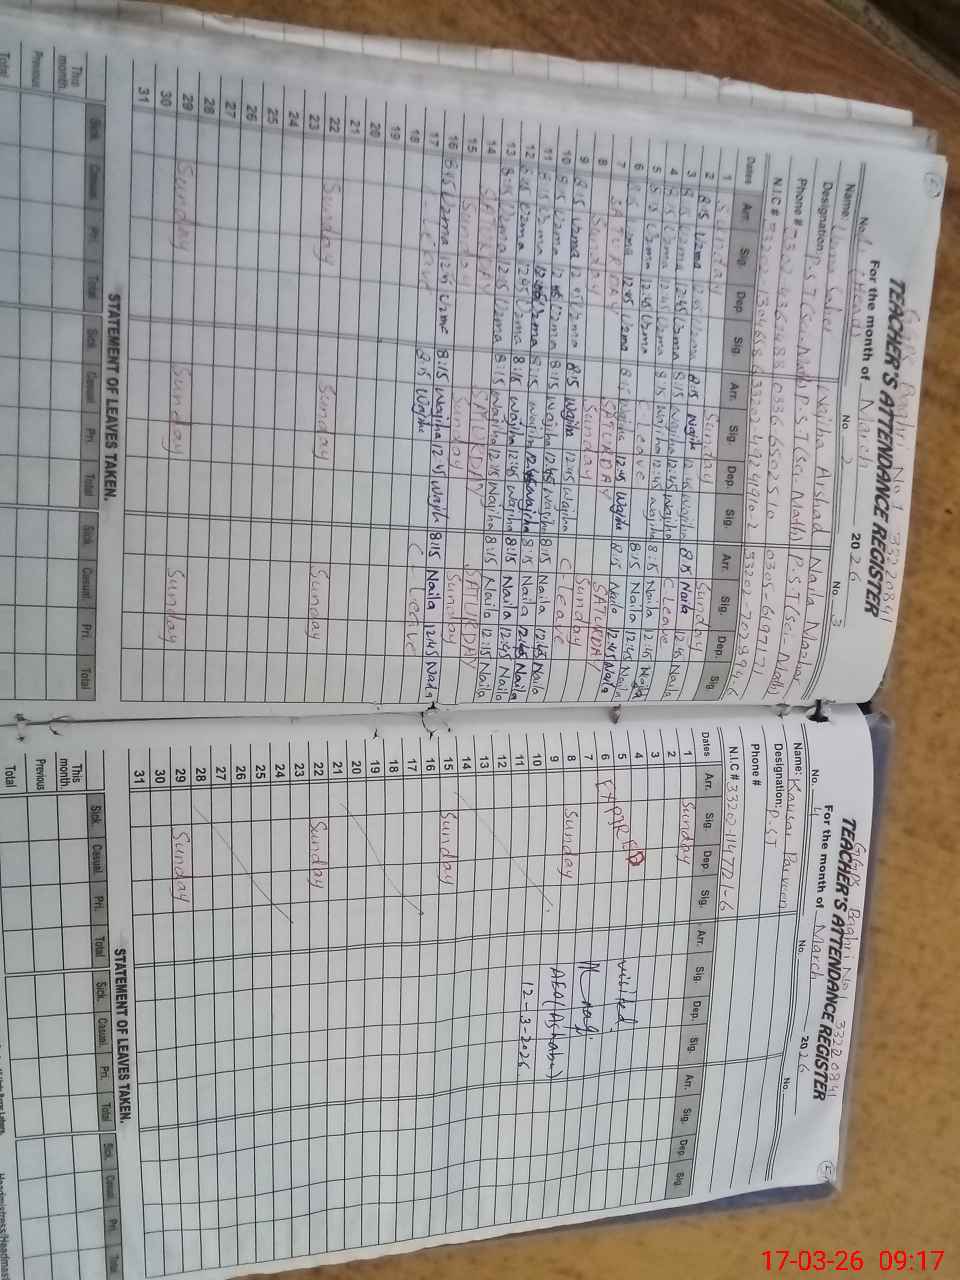 GGPS Baghri No 1 33220841
TEACHER'S ATTENDANCE REGISTER
For the month of March 2026
No. 1 No. 2 No. 3
Name: Uzma Wajiha Arshad Naila Mazhar
Designation: P.S.T (Sci. Math) P.S.T (Sci. Math) P.S.T (Sci. Math)
Phone #
N.I.C #
Dates Arr. Sig. Dep. Sig. Arr. Sig. Dep. Sig. Arr. Sig. Dep. Sig.
1 Sunday Sunday Sunday
2 8:15 Uzma 12:45 Uzma 8:15 Wajiha 12:45 Wajiha 8:15 Naila 12:45 Naila
3 8:15 Uzma 12:45 Uzma 8:15 Wajiha 12:45 Wajiha C-Leave
4 8:15 Uzma 12:45 Uzma 8:15 Wajiha 12:45 Wajiha 8:15 Naila 12:45 Naila
5 8:15 Uzma 12:45 Uzma Leave 8:15 Naila 12:45 Naila
6 8:15 Uzma 12:45 Uzma 8:15 Wajiha 12:45 Wajiha 8:15 Naila 12:45 Naila
7 SATURDAY SATURDAY SATURDAY
8 Sunday Sunday Sunday
9 8:15 Uzma 12:45 Uzma 8:15 Wajiha 12:45 Wajiha C-Leave
10 8:15 Uzma 12:45 Uzma 8:15 Wajiha 12:45 Wajiha 8:15 Naila 12:45 Naila
11 8:15 Uzma 12:45 Uzma 8:15 Wajiha 12:45 Wajiha 8:15 Naila 12:45 Naila
12 8:15 Uzma 12:45 Uzma 8:15 Wajiha 12:45 Wajiha 8:15 Naila 12:45 Naila
13 8:15 Uzma 12:15 Uzma 8:15 Wajiha 12:15 Wajiha 8:15 Naila 12:15 Naila
14 SATURDAY SATURDAY SATURDAY
15 Sunday Sunday Sunday
16 8:15 Uzma 12:45 Uzma 8:15 Wajiha 12:45 Wajiha 8:15 Naila 12:45 Naila
17 C-Leave 8:15 Wajiha C-Leave
18
19
20
21
22 Sunday Sunday Sunday
23
24
25
26
27
28
29 Sunday Sunday Sunday
30
31
STATEMENT OF LEAVES TAKEN.
Sick. Casual. Pri. Total Sick. Casual. Pri. Total Sick. Casual. Pri. Total
This month
Previous
Total
GGPS Baghri No 1 33220841
TEACHER'S ATTENDANCE REGISTER
For the month of March 2026
No. 4 No. No.
Name: Kausar Parveen
Designation: P.S.T
Phone #
N.I.C # 33202-1147721-6
Dates Arr. Sig. Dep Sig. Arr. Sig. Dep. Sig. Arr. Sig. Dep. Sig.
1 Sunday
2
3
4
5 visited.
6 EXPIRED
7
8 Sunday
9 AEO (Asham)
10 12-3-2026
11
12
13
14
15 Sunday
16
17
18
19
20
21
22 Sunday
23
24
25
26
27
28
29 Sunday
30
31
STATEMENT OF LEAVES TAKEN.
Sick. Casual. Pri. Total Sick. Casual. Pri. Total Sick. Casual. Pri. Total
This month
Previous
Total
17-03-26 09:17